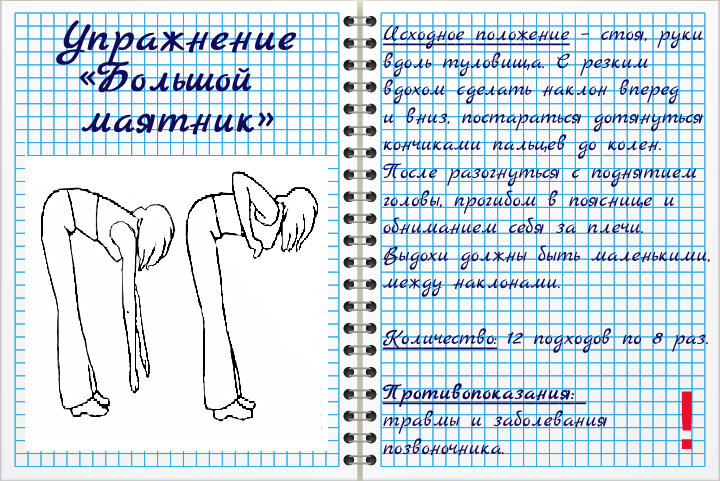 Упражнение
«Большой
маятник»
Исходное положение – стоя, руки
вдоль туловища. С резким
вдохом сделать наклон вперед
и вниз, постараться дотянуться
кончиками пальцев до колен.
После разогнуться с поднятием
головы, прогибом в пояснице и
обниманием себя за плечи.
Выдохи должны быть маленькими,
между наклонами.
Количество: 12 подходов по 8 раз.
Противопоказания:
травмы и заболевания
позвоночника.
!